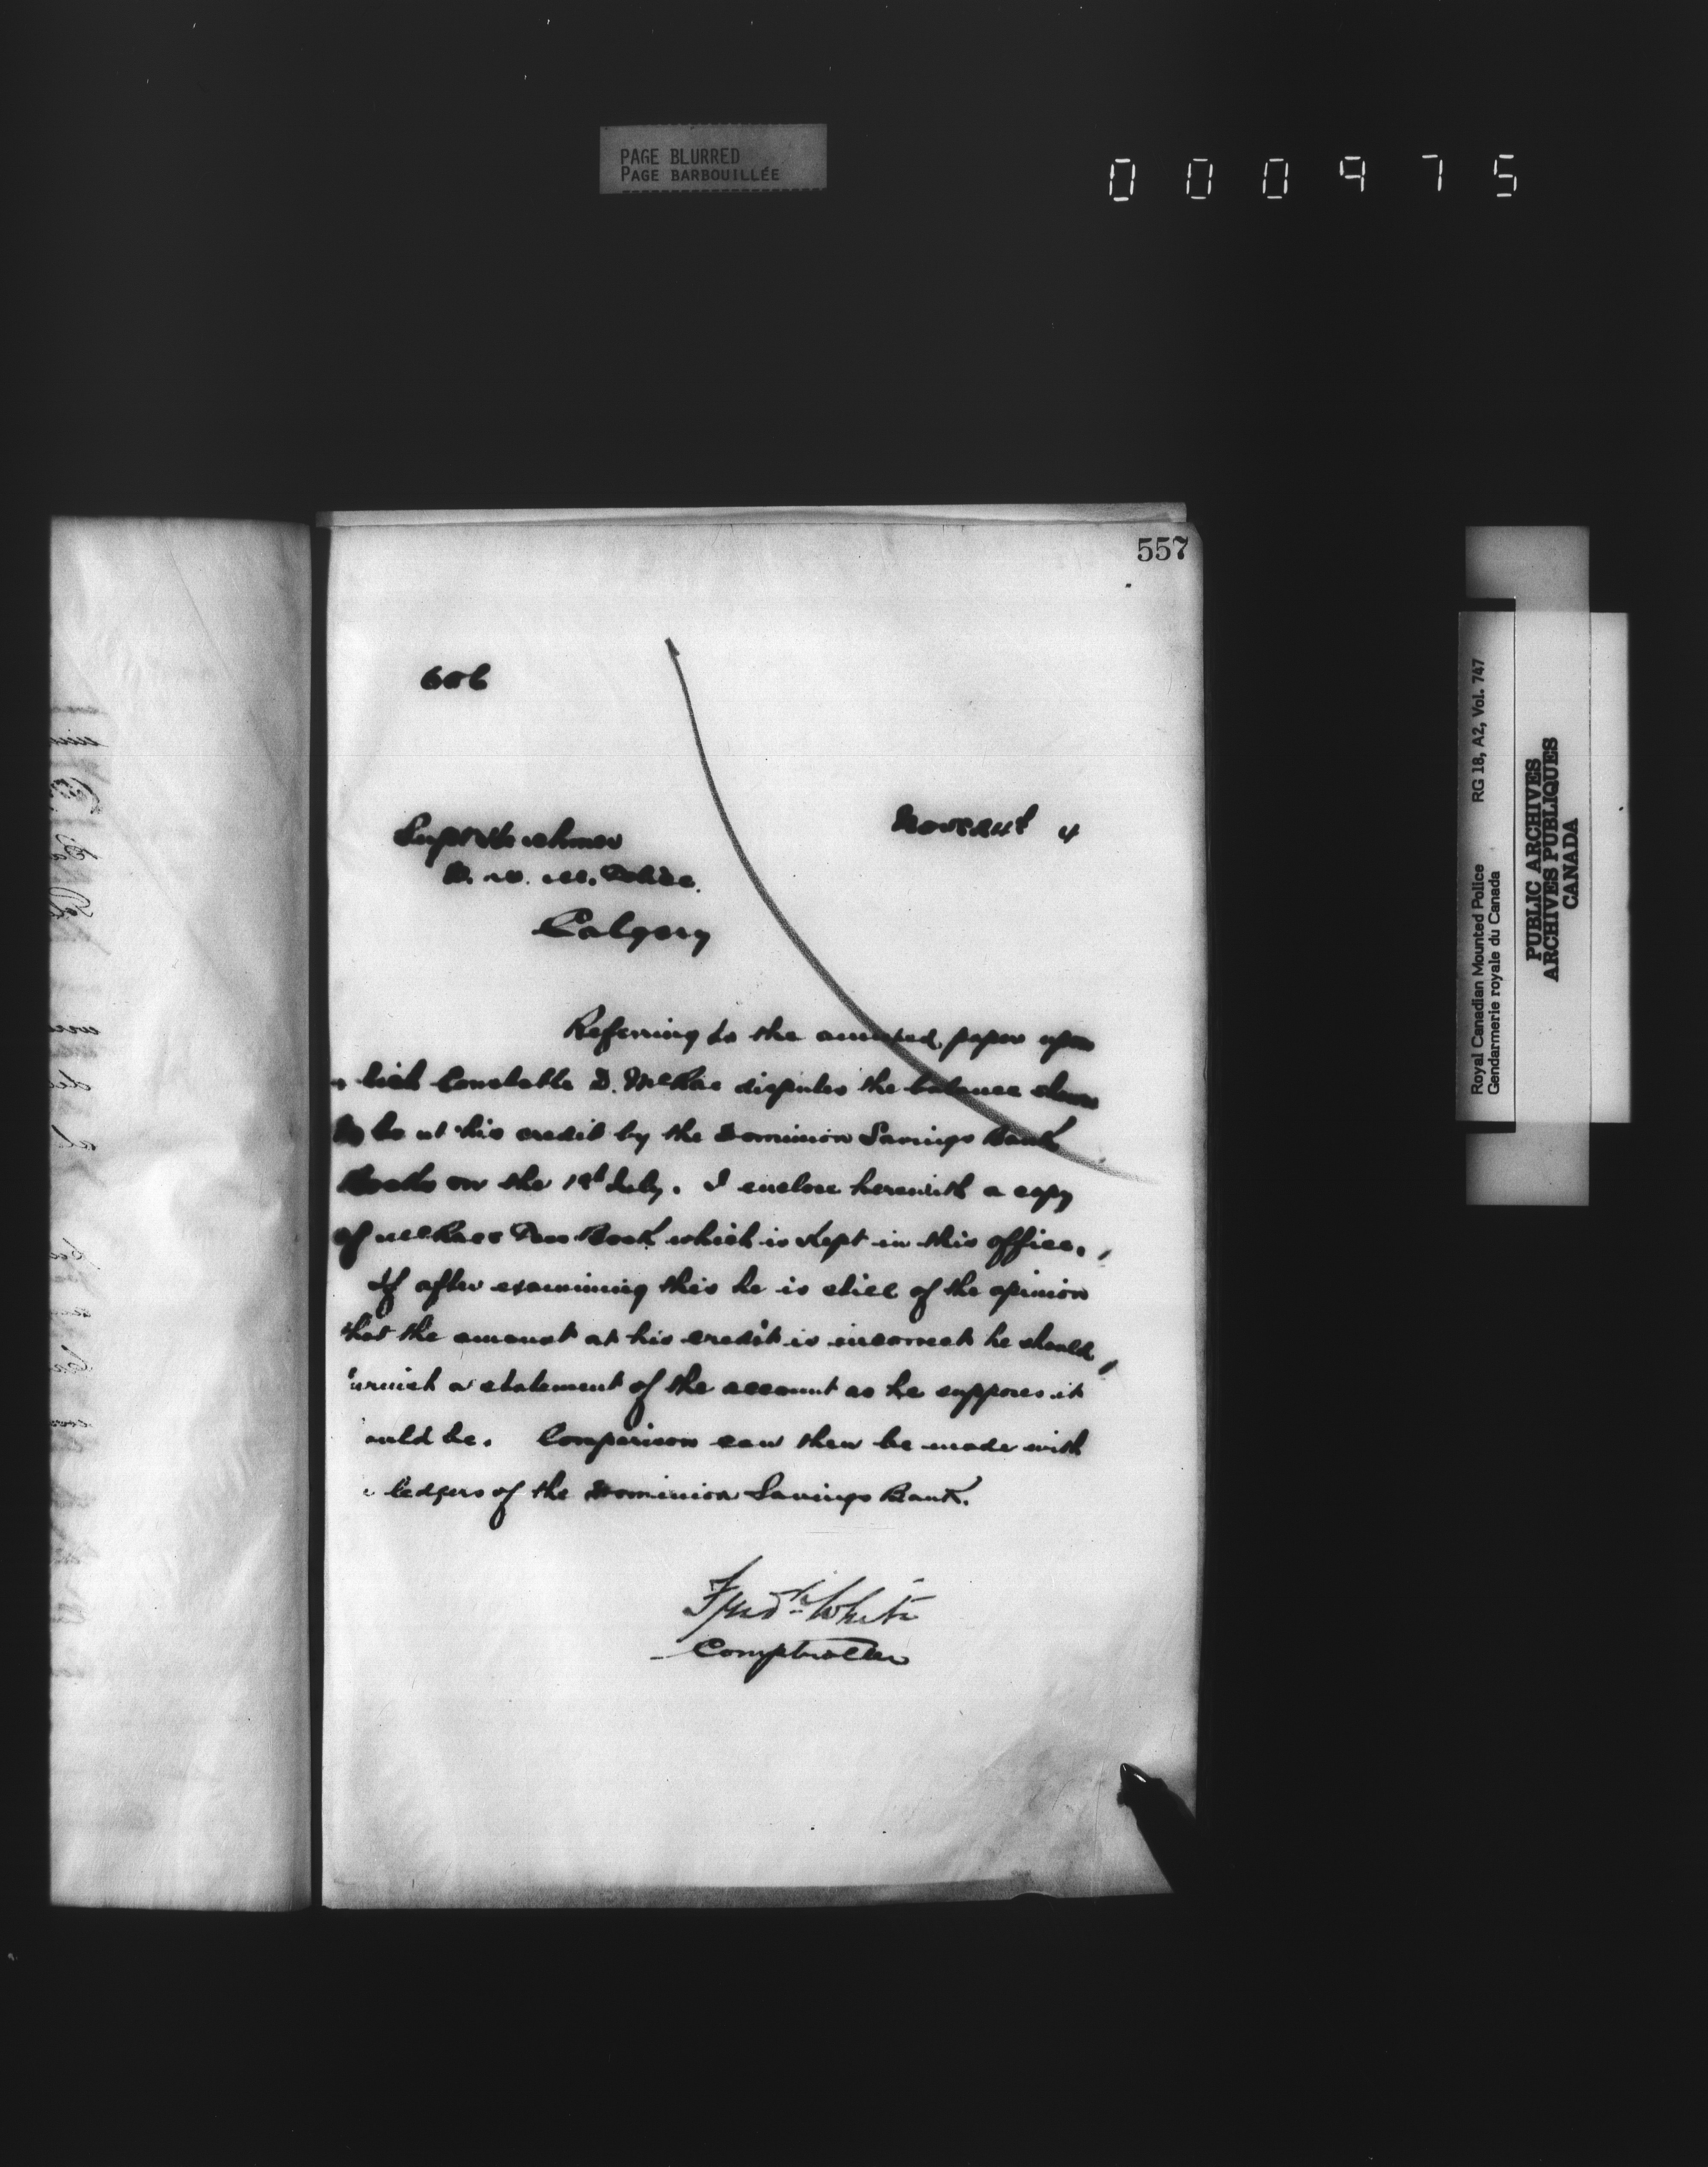 PAGE BLURRED
PAGE BARBOUILLÉE
000975
557
606
Supt Herchmer
Novr 24th 4
N. W. M. Police.
Calgary
Referring to the annexed paper upon
hich Constable D. McRae disputes the balance shown
to be at his credit by the Dominion Savings Bank
Books on the 1st July. I enclose herewith a copy
of McRaes Pass Book which is kept in this office.
If after examining this he is still of the opinion
that the amount at his credit is incorrect he should
urnish a statement of the account as he supposes it
ould be. Comparison can then be made with
e ledgers of the Dominion Savings Bank.
Fredk White
Comptroller
Royal Canadian Mounted Police RG 18, A2, Vol. 747
Gendarmerie royale du Canada
PUBLIC ARCHIVES
ARCHIVES PUBLIQUES
CANADA